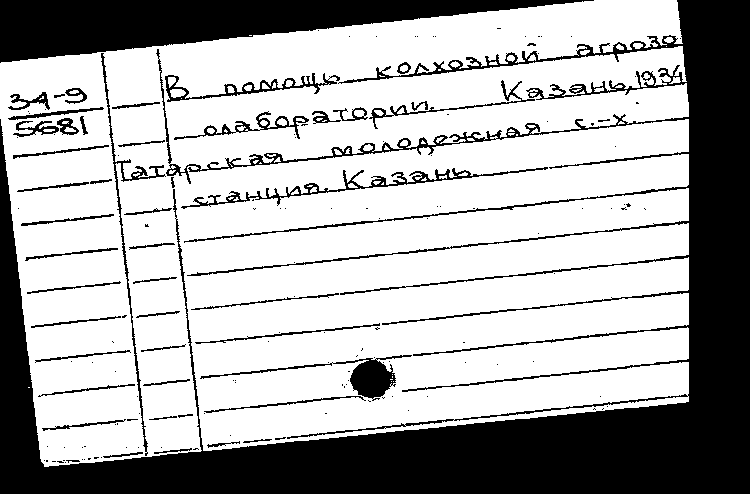 34-9
5681
В помощь колхозной агрозо
олаборатории. Казань, 1934
Татарская молодежная с.-х.
станция. Казань.